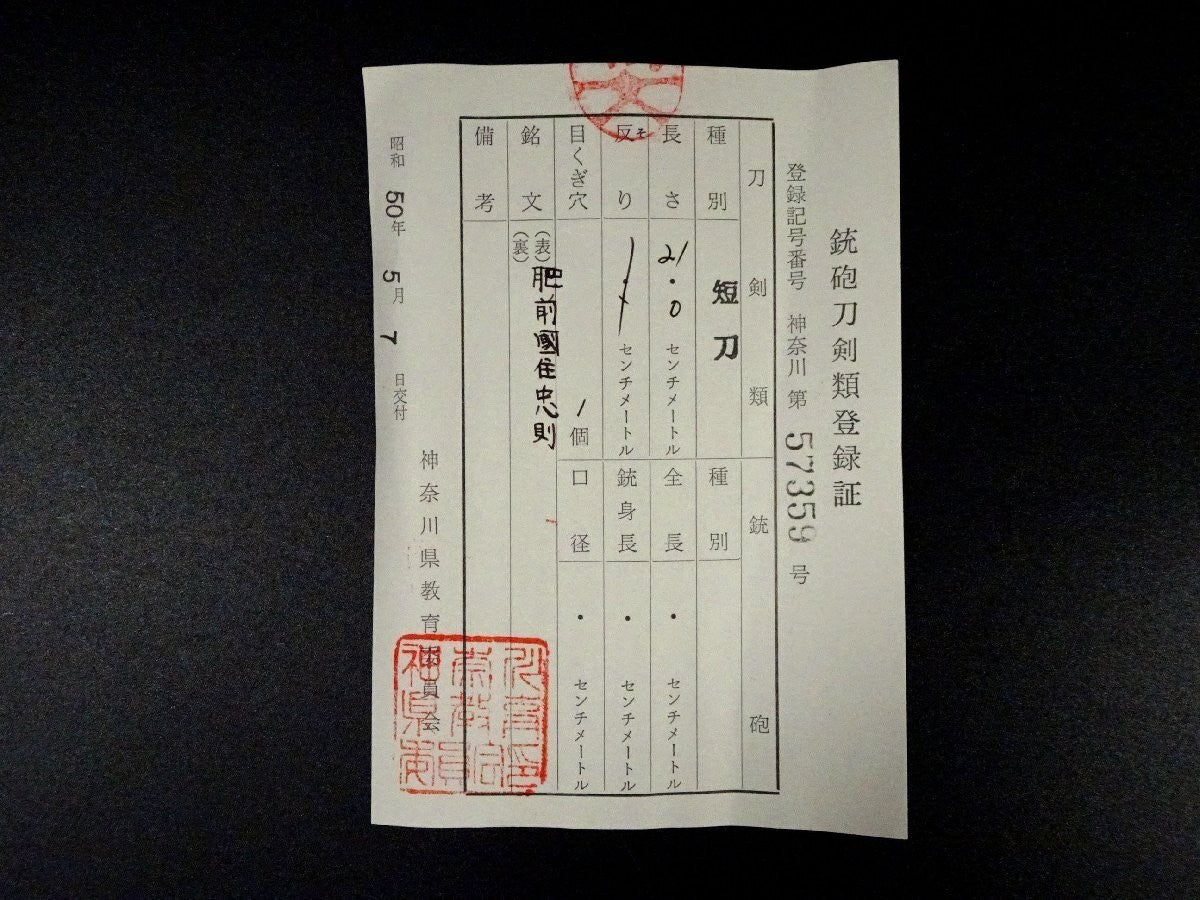 銃砲刀剣類登録証
登録記号番号 神奈川 第 57359 号
刀剣類
種別 短刀
長さ 21.0 センチメートル
反り そ センチメートル
目くぎ穴 1個
銘文 (表) 肥前國住忠則
(裏)
備考
銃砲
種別
全長 ・ センチメートル
銃身長 ・ センチメートル
口径 ・ センチメートル
昭和 50年 5月 7日交付
神奈川県教育委員会